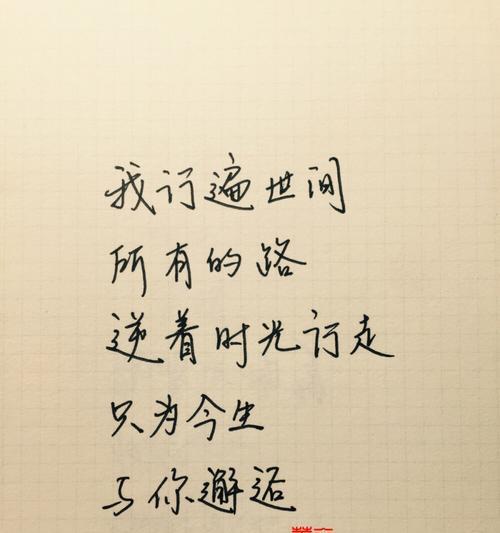 我行遍世间
所有的路
逆着时光行走
只为今生
与你邂逅